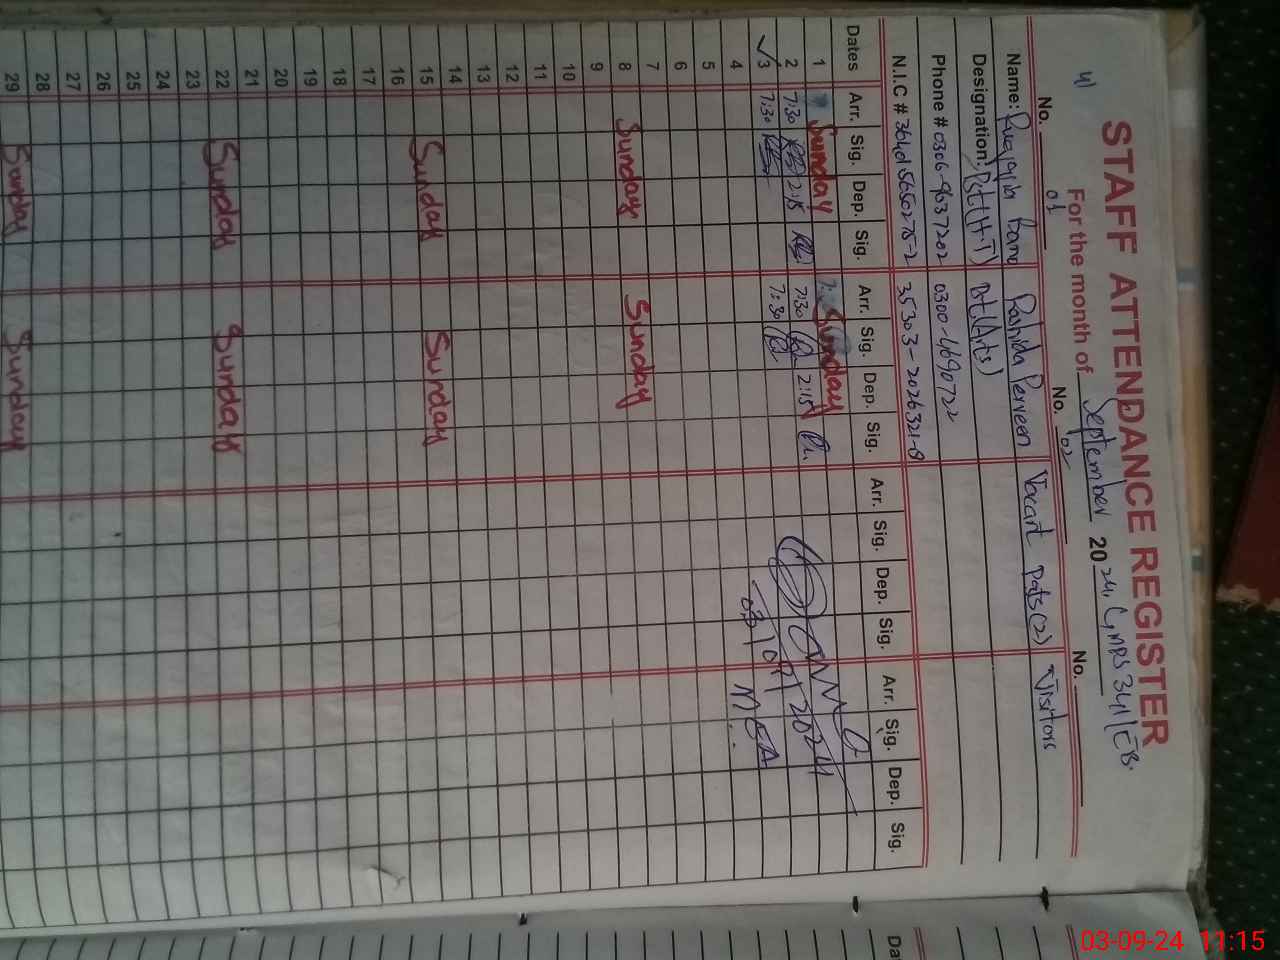 41
STAFF ATTENDANCE REGISTER
For the month of September 2024. GMPS 341/EB.
No. 01 No. 02 No.
Name: Ruqayia Bano Rashida Perveen Vacant Pots(2) Visitors
Designation: Pst(H.T) Pst(Arts)
Phone # 0306-9637202 0300-4690722
N.I.C # 35303-2026321-8
Dates Arr. Sig. Dep. Sig. Arr. Sig. Dep. Sig. Arr. Sig. Dep. Sig. Arr. Sig. Dep. Sig.
1 Sunday Sunday
2 7:30 2:15 7:30 2:15
✓3 7:30 7:30
03/09/2024
4 MEA
5
6
7
8 Sunday Sunday
9
10
11
12
13
14
15 Sunday Sunday
16
17
18
19
20
21
22 Sunday Sunday
23
24
25
26
27
28
29 Sunday Sunday
Da
03-09-24 11:15